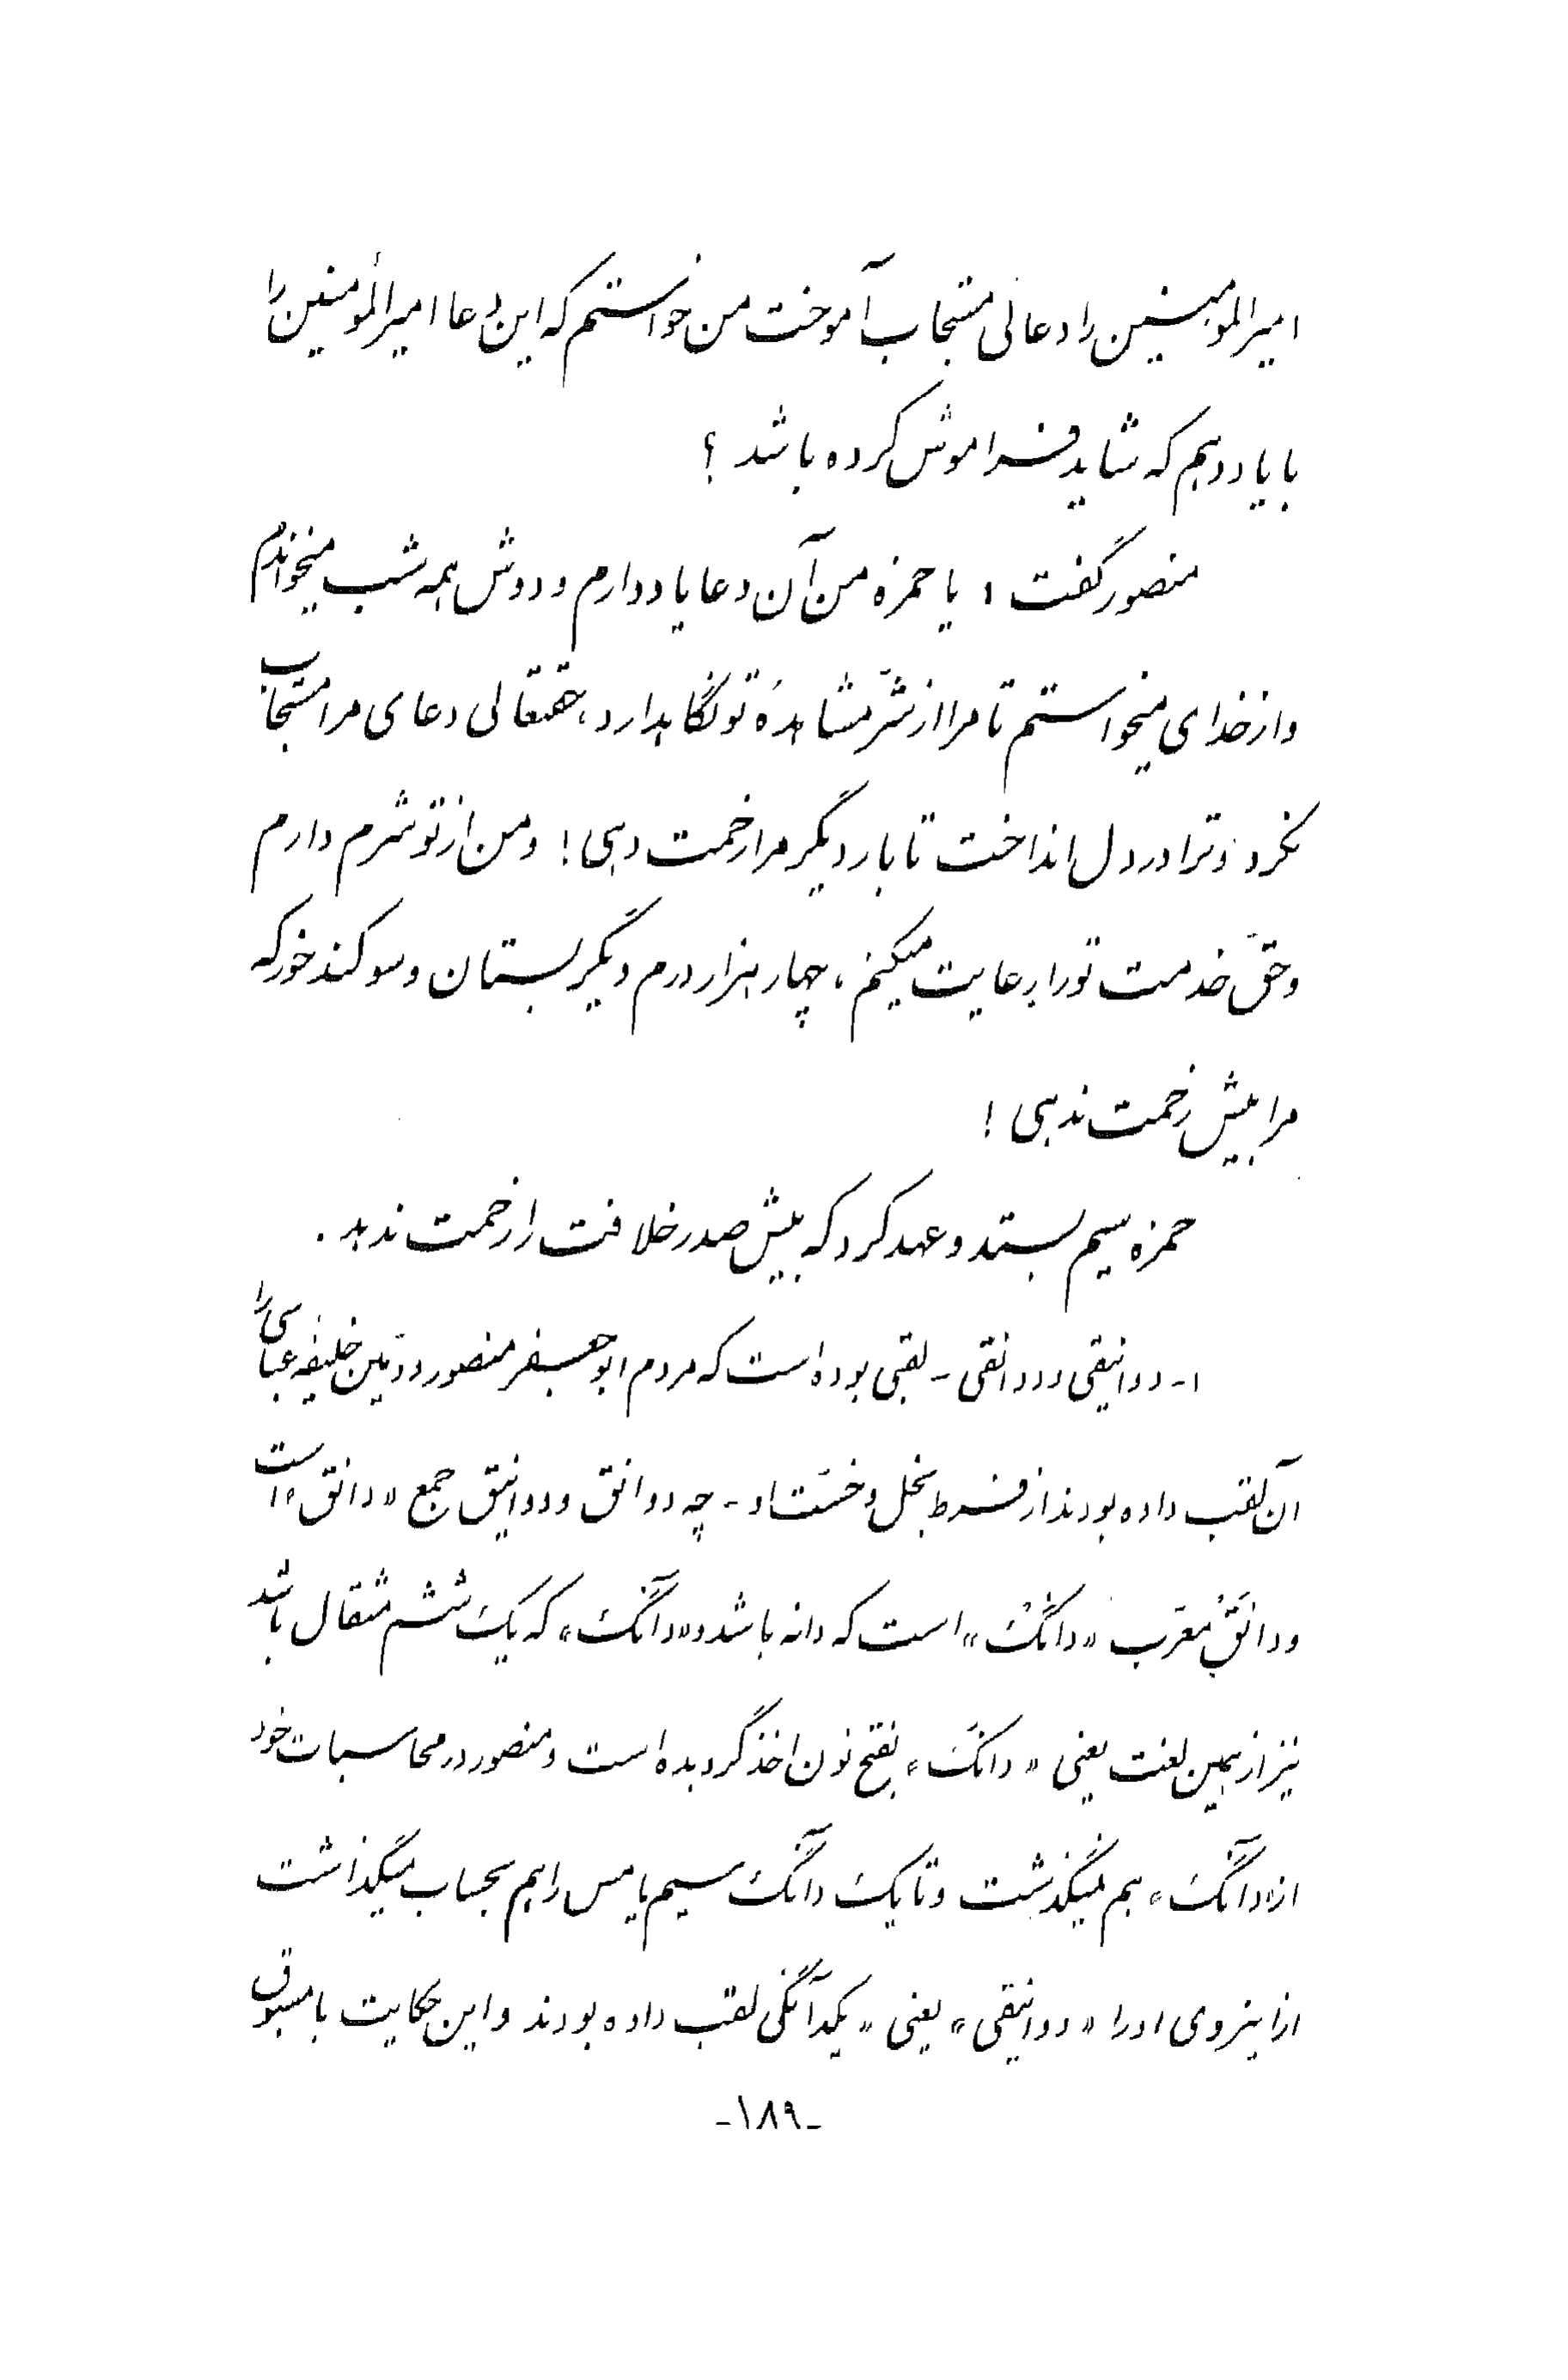 امیرالمومنین را دعائی مستجاب آموخت من خواستم که این دعا امیرالمؤمنین را
با یاد دهم که شاید فراموش کرده باشد ؟
منصور گفت : یا حمزه من آن دعا یاد دارم و دوش همه شب میخواندم
و از خدای میخواستم تا مرا از شرّ مشاهدهٔ تو نگاهدارد، حقتعالی دعای مرا مستجاب
نکرد و ترا در دل انداخت تا بار دیگر مرا زحمت دهی! و من از تو شرم دارم
و حقّ خدمت تو را رعایت میکنم ، چهار هزار درم دیگر بستان و سوگند خور که
مرا بیش زحمت ندهی !
حمزه سیم بستد و عهد کرد که بیش صدر خلافت را زحمت ندهد .
۱- دوانیقی و دوانقی - لقبی بوده است که مردم ابوجعفر منصور دوّمین خلیفه عباسی را
آن لقب داده بودند از فرط بخل و خسّت او - چه دوانق و دوانیق جمع «دانق» است
و دانَقْ معرّب «دانَگْ» است که دانه باشد و «دآنگ» که یک ششم مثقال باشد
نیز از همین لغت یعنی «دانَگ» بفتح نون اخذ گردیده است و منصور در محاسبات خود
از «دآنگ» هم نمیگذشت و تا یک دآنگ سیم یا مس را هم بحساب میگذاشت
از اینروی او را «دوانیقی» یعنی «یکدآنگی لقب داده بودند و این حکایت با مسبوق
-۱۸۹-